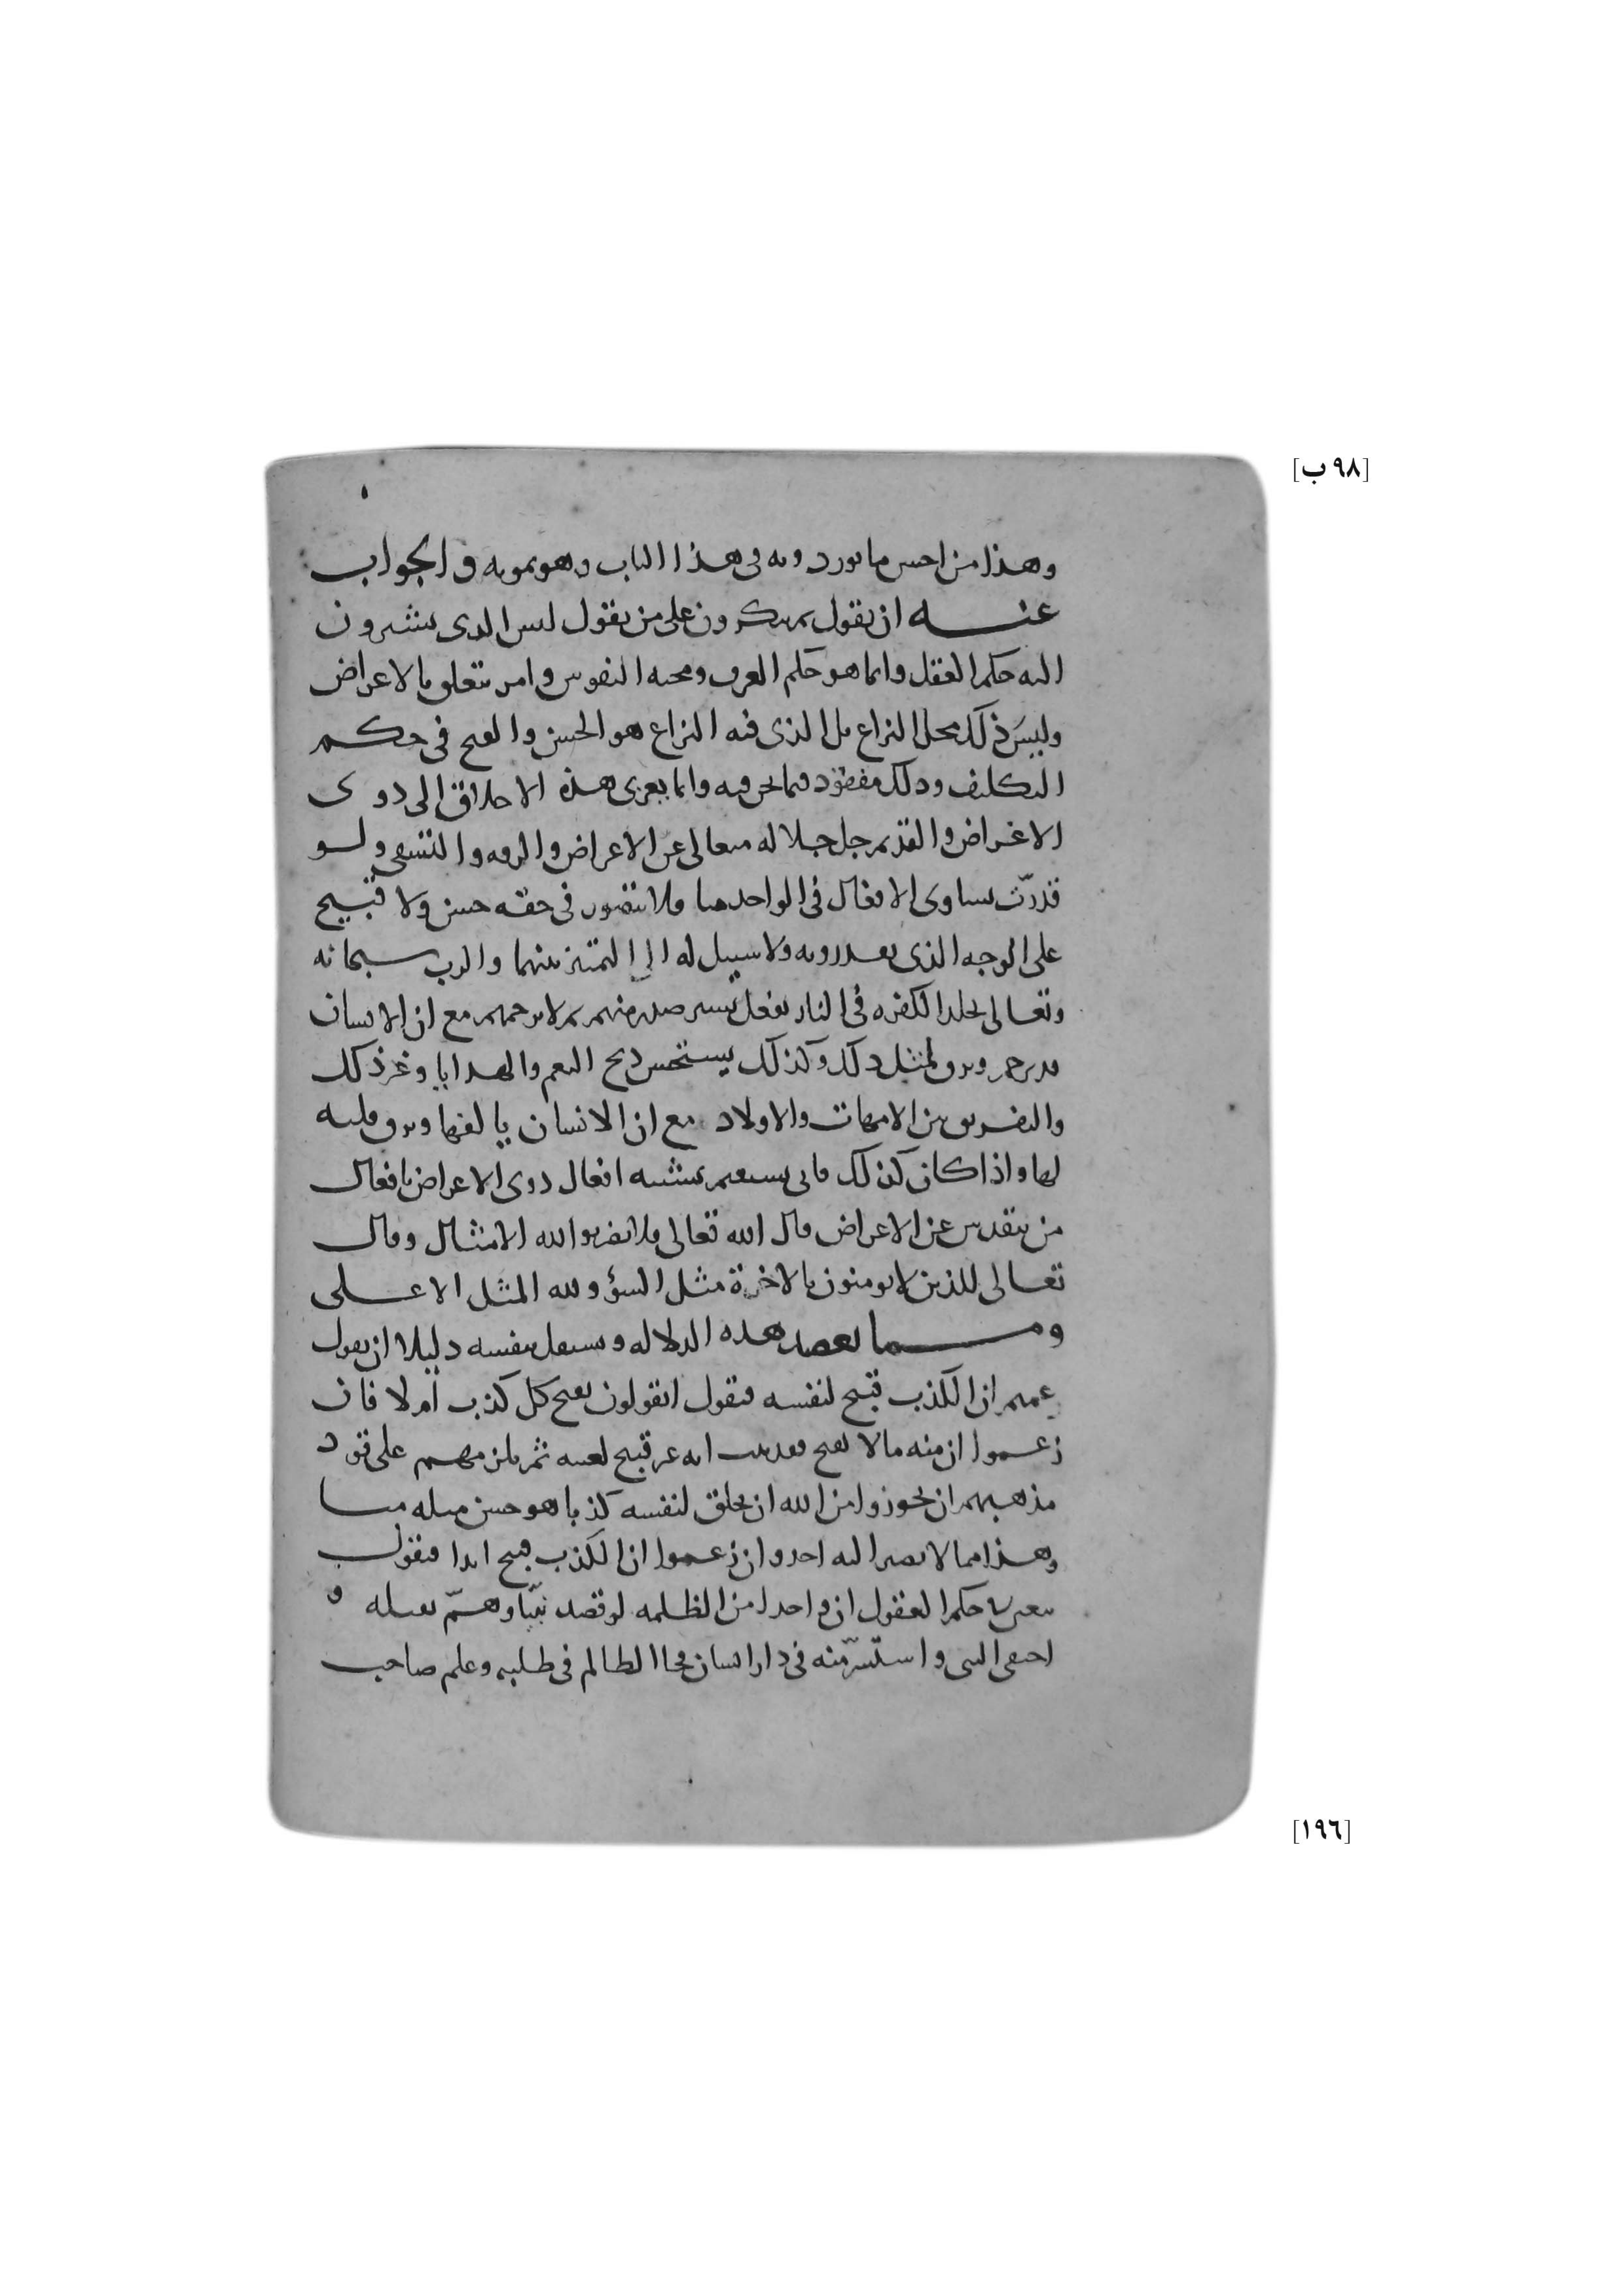 [٩٨ ب]
وهذا من احسن ما يوردونه في هذا الباب وهو تمويه والجواب
عنه ان نقول بم تنكرون على من يقول ليس الذي تشيرون
اليه حكم العقل وانما هو حكم العرف ومحبه النفوس وامر يتعلق بالاعراض
وليس ذلك محل النزاع بل الذي فيه النزاع هو الحسن والقبح في حكم
التكليف وذلك مفقود فيما نحن فيه وانما يعزى هذه الاخلاق الى ذوي
الاغراض والقديم جل جلاله متعالى عن الاعراض والرقه والتشفي ولو
قدرت تساوى الافعال في الواحد منا فلا يتصور في حقه حسن ولا قبيح
على الوجه الذي يقدرونه ولا سبيل له الى التمييز بينهما والرب سبحانه
وتعالى يخلد الكفره في النار بفعل يسير صدر منهم ثم لا يرحمهم مع ان الانسان
قد يرحم ويرق لمثل ذلك وكذلك يستحسن ذبح النعم والهدايا وغير ذلك
والتفريق بين الامهات والاولاد مع ان الانسان يالفها ويرق قلبه
لها واذا كان كذلك فانى يستقيم تشبيه افعال ذوى الاعراض بافعال
من يتقدس عن الاعراض قال الله تعالى فلا تضربوا لله الامثال وقال
تعالى للذين لا يومنون بالاخرة مثل السؤ ولله المثل الاعلى
ومما يعضد هذه الدلاله ويستقل بنفسه دليلا ان نقول
زعمتم ان الكذب قبيح لنفسه فنقول اتقولون يقبح كل كذب ام لا فان
زعموا ان منه ما لا يقبح فقد ثبت انه غير قبيح لعينه ثم يلزمهم على قود
مذهبهم ان يجوزوا من الله ان يخلق لنفسه كذبا هو حسن مثله منا
وهذا مما لا يصير اليه احد وان زعموا ان الكذب قبيح ابدا فنقول
حكم العقول ان واحدا من الظلمه لو قصد نبيا وهم بقتله و
اختفى النبي واستتر منه في دار انسان فجا الظالم في طلبه وعلم صاحب
[١٩٦]